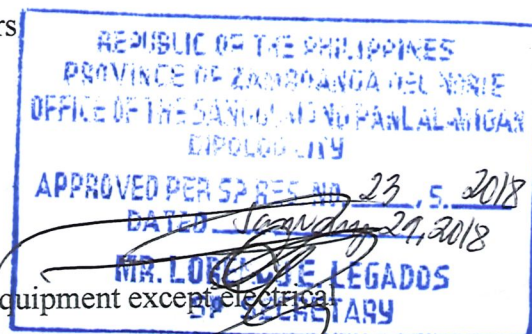 rs
REPUBLIC OF THE PHILIPPINES
PROVINCE OF ZAMBOANGA DEL NORTE
OFFICE OF THE SANGGUNIANG PANLALAWIGAN
DIPOLOG CITY
APPROVED PER SP RES. NO. 23, S. 2018
DATED 29, 2018
MR. E. LEGADOS
SP SECRETARY
quipment except electrical